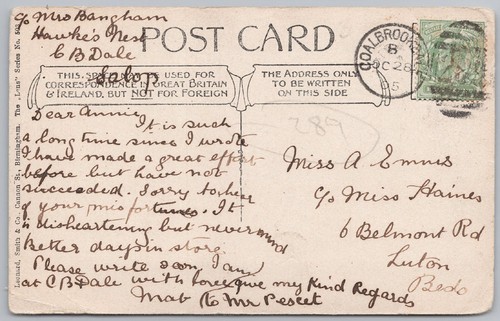 c/o Mrs Bangham
Hawke's Nest
C B Dale
Salop
POST CARD
THIS SPACE MAY BE USED FOR
CORRESPONDENCE IN GREAT BRITAIN
& IRELAND, BUT NOT FOR FOREIGN
THE ADDRESS ONLY
TO BE WRITTEN
ON THIS SIDE
COALBROOKDALE
8
OC 28
05
289
Dear Annie
It is such
a long time since I wrote
I have made a great effort
before but have not
succeeded. Sorry to hear
of your misfortunes. It
is disheartening but never mind
Better days in store.
Please write soon I am
at C B Dale with love give my Kind Regards
Mab to Mr Pescet
Miss A Emms
c/o Miss Haines
6 Belmont Rd
Luton
Beds
Leonard, Smith & Co., Cannon St., Birmingham. The "Lena" Series No.